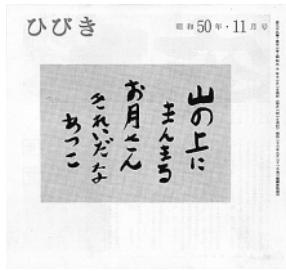 ひびき
昭和50年・11月号
山の上に
まんまる
お月さん
きれいだな
あつこ